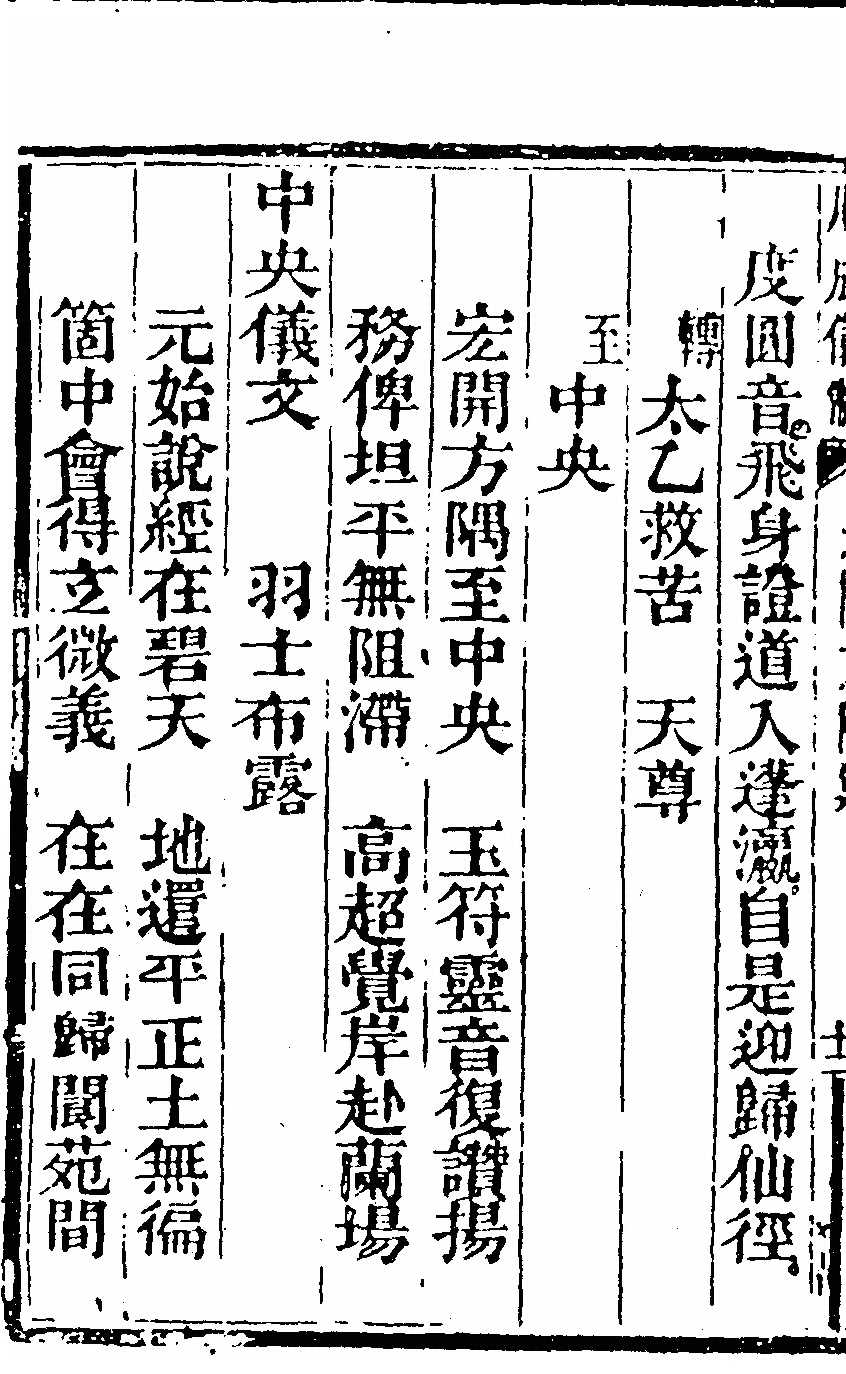 度圓音飛身證道入蓬瀛自是迎歸仙徑
轉太乙救苦　天尊
至中央
宏開方隅至中央　玉符靈音復讚揚
務俾坦平無阻滯　高超覺岸赴蘭場
中央儀文　　羽士布露
元始說經在碧天　地還平正土無徧
箇中會得立微義　在在同歸閬苑間